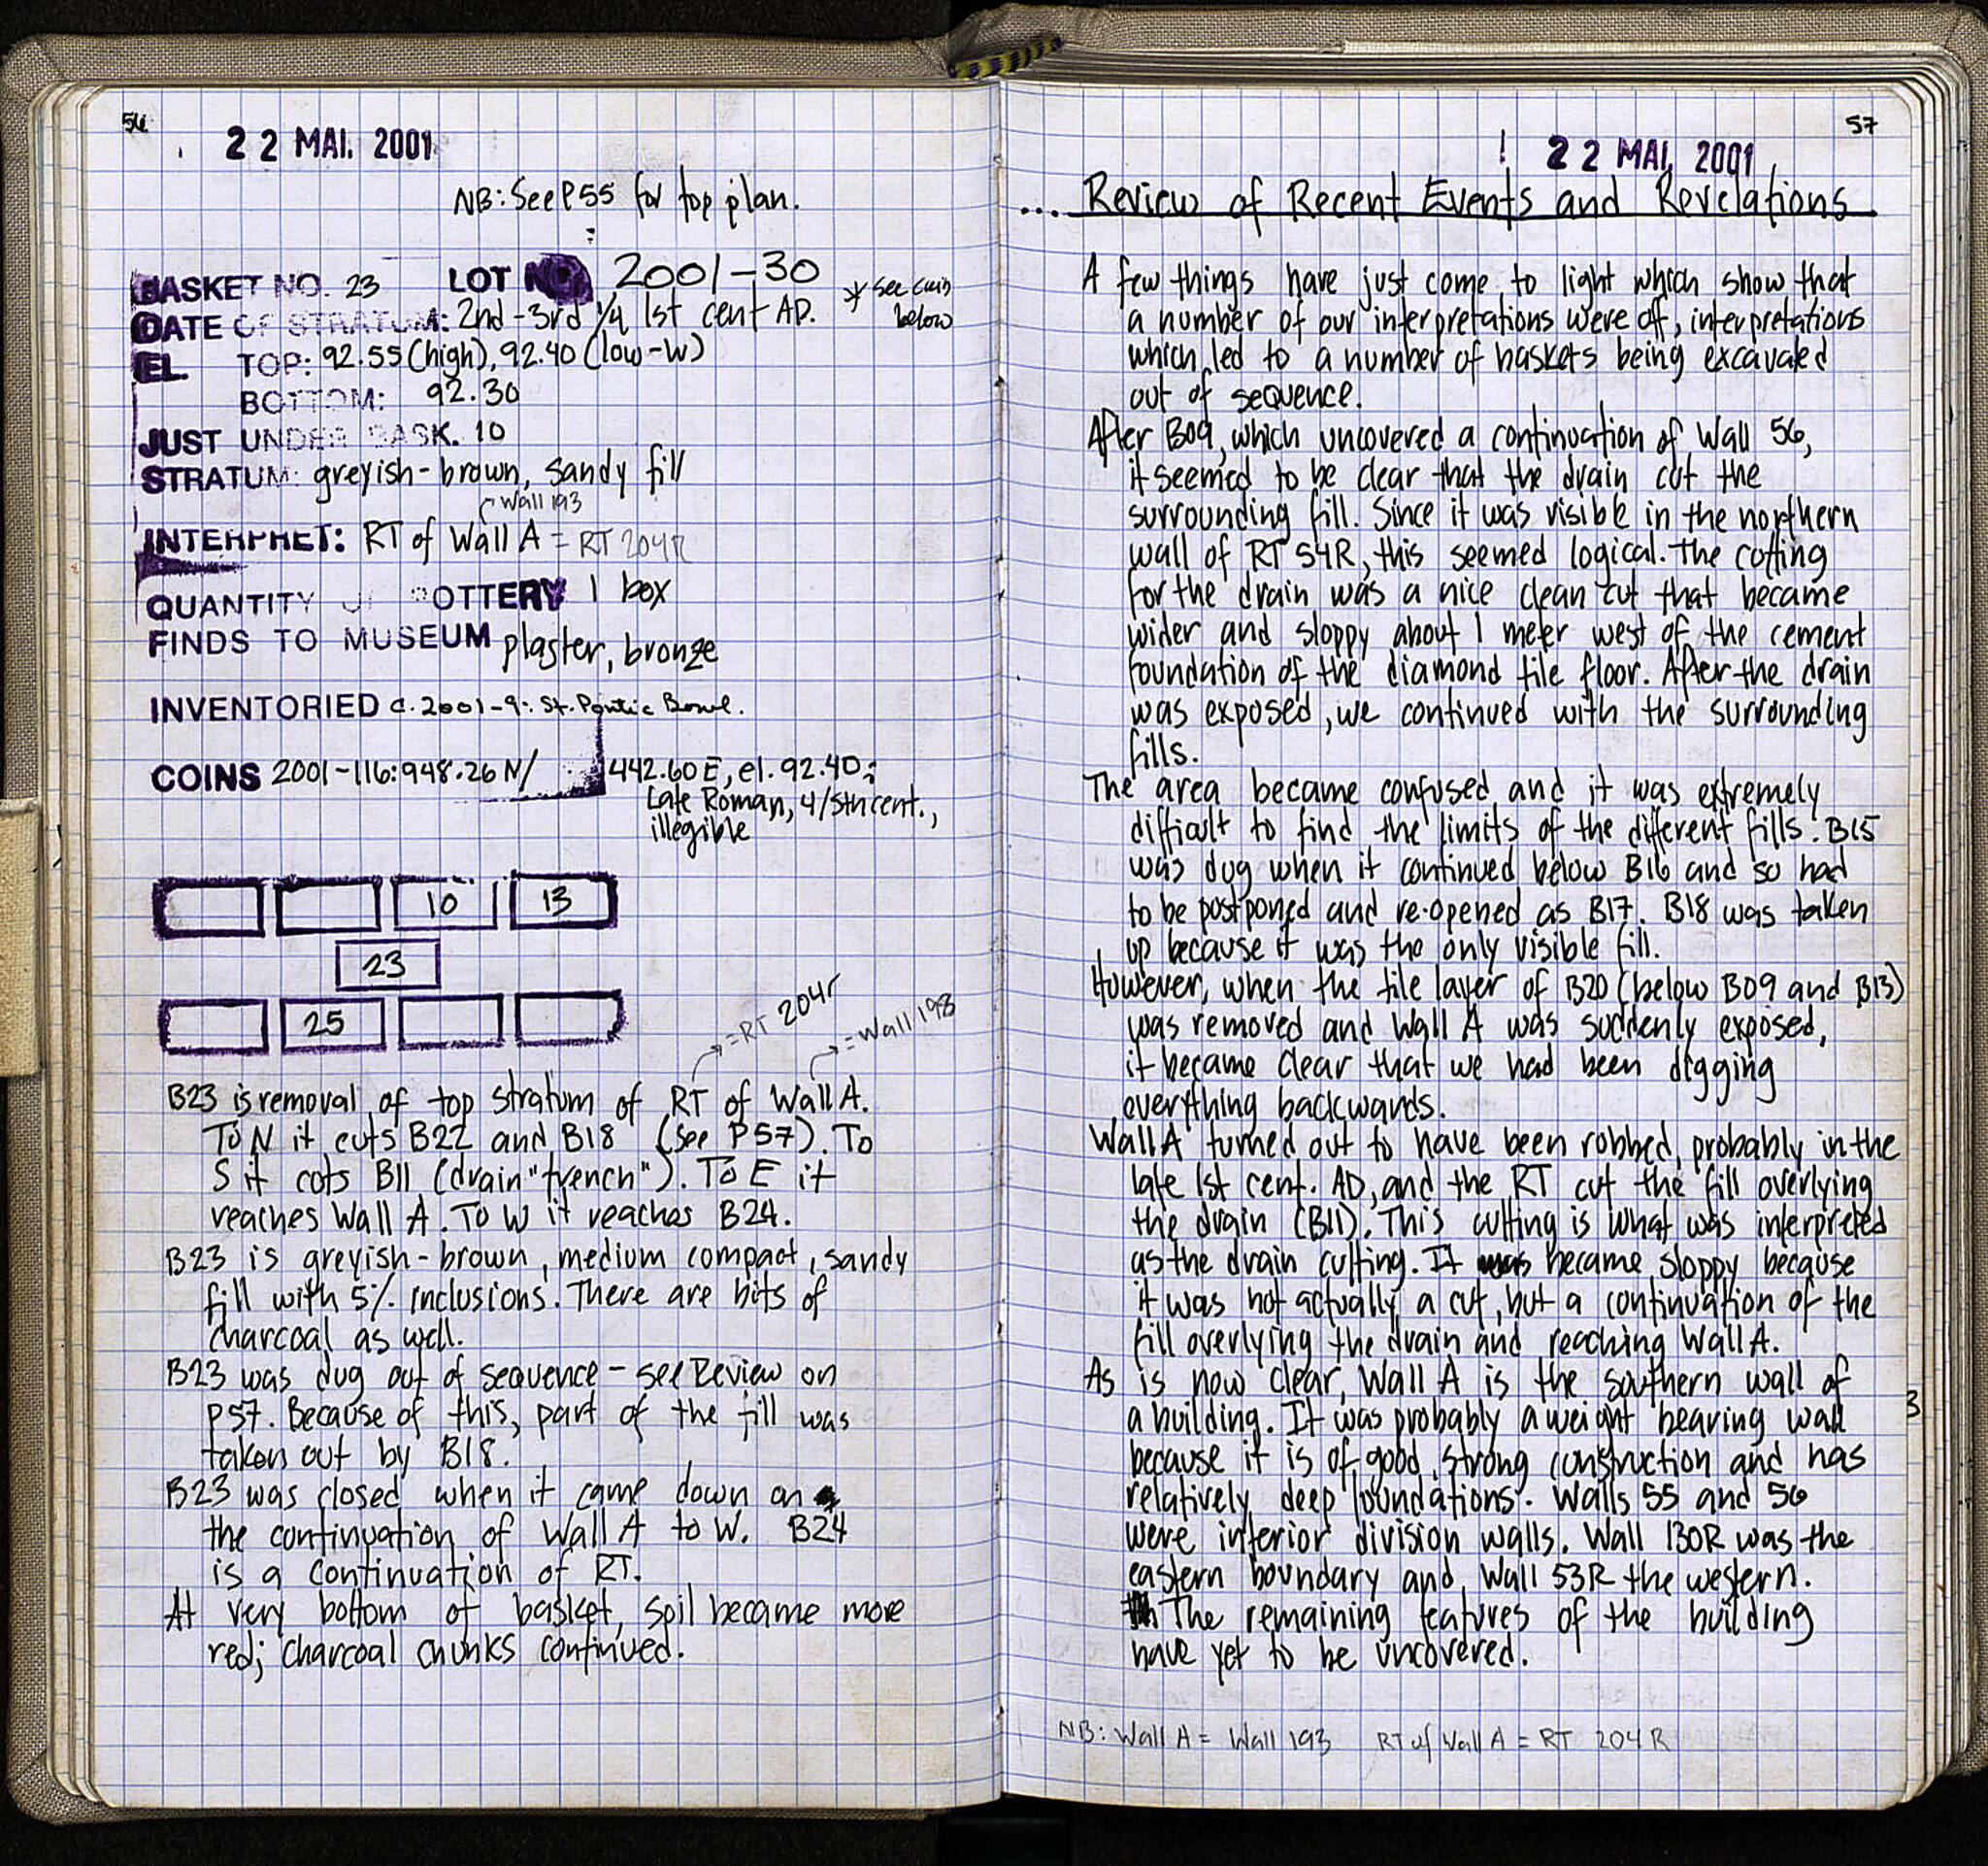 56
22 MAI. 2001
NB: See P55 for top plan.
BASKET NO. 23 LOT NO. 2001-30
* see coin
below
DATE OF STRATUM: 2nd-3rd 1/4 1st cent AD.
EL. TOP: 92.55 (high), 92.40 (low-W)
BOTTOM: 92.30
JUST UNDER BASK. 10
STRATUM: greyish-brown, sandy fill
Wall 193
INTERPRET: RT of Wall A = RT 204R
QUANTITY OF POTTERY 1 box
FINDS TO MUSEUM plaster, bronze
INVENTORIED C.2001-9: St. Pontic Bowl.
COINS 2001-116: 948.26 N/ 442.60 E, el. 92.40;
Late Roman, 4/5th cent.,
illegible
10 13
23
25
=RT 204r
=Wall 193
B23 is removal of top stratum of RT of Wall A.
To N it cuts B22 and B18 (see P57). To
S it cuts B11 (drain "trench"). To E it
reaches Wall A. To W it reaches B24.
B23 is greyish-brown, medium compact, sandy
fill with 5% inclusions. There are bits of
charcoal as well.
B23 was dug out of sequence - see Review on
P57. Because of this, part of the fill was
taken out by B18.
B23 was closed when it came down on
the continuation of Wall A to W. B24
is a continuation of RT.
At very bottom of basket, soil became more
red; charcoal chunks continued.
57
! 22 MAI. 2001
.... Review of Recent Events and Revelations
A few things have just come to light which show that
a number of our interpretations were off, interpretations
which led to a number of baskets being excavated
out of sequence.
After B09, which uncovered a continuation of Wall 56,
it seemed to be clear that the drain cut the
surrounding fill. Since it was visible in the northern
wall of RT 54R, this seemed logical. The cutting
for the drain was a nice clean cut that became
wider and sloppy about 1 meter west of the cement
foundation of the diamond tile floor. After the drain
was exposed, we continued with the surrounding
fills.
The area became confused and it was extremely
difficult to find the limits of the different fills. B15
was dug when it continued below B16 and so had
to be postponed and re-opened as B17. B18 was taken
up because it was the only visible fill.
However, when the tile layer of B20 (below B09 and B13)
was removed and Wall A was suddenly exposed,
it became clear that we had been digging
everything backwards.
Wall A turned out to have been robbed, probably in the
late 1st cent. AD, and the RT cut the fill overlying
the drain (B11). This cutting is what was interpreted
as the drain cutting. It became sloppy because
it was not actually a cut, but a continuation of the
fill overlying the drain and reaching Wall A.
As is now clear, Wall A is the southern wall of
a building. It was probably a weight bearing wall
because it is of good, strong construction and has
relatively deep foundations. Walls 55 and 56
were interior division walls. Wall 130R was the
eastern boundary and Wall 53R the western.
The remaining features of the building
have yet to be uncovered.
NB: Wall A = Wall 193 RT of Wall A = RT 204R
3